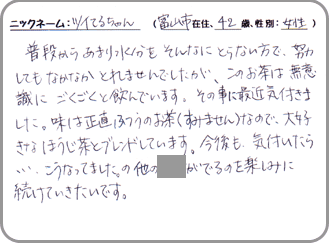 ニックネーム:ツイてるちゃん (富山市在住、42歳、性別:女性)
普段からあまり水分をそんなにとらない方で、努力
してもなかなかとれませんでしたが、このお茶は無意
識にごくごくと飲んでいます。その事に最近気付きま
した。味は正直ふつうのお茶(すみません)なので、大好
きなほうじ茶とブレンドしています。今後も、気付いたら
…こうなってました。の他の がでるのを楽しみに
続けていきたいです。